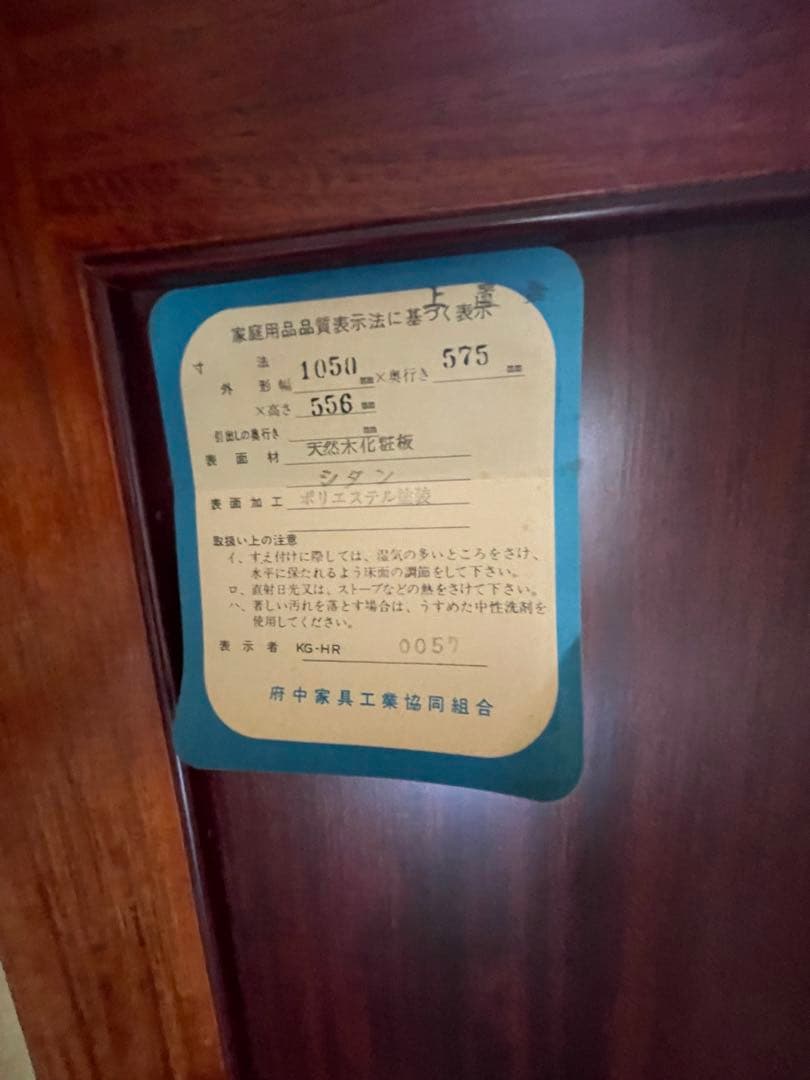 上置
家庭用品品質表示法に基づく表示
寸法
外形幅 1050 mm×奥行き 575 mm
×高さ 556 mm
引出しの奥行き mm
表面材 天然木化粧板
シタン
表面加工 ポリエステル塗装
取扱い上の注意
イ、すえ付けに際しては、湿気の多いところをさけ、
水平に保たれるよう床面の調節をして下さい。
ロ、直射日光又は、ストーブなどの熱をさけて下さい。
ハ、著しい汚れを落とす場合は、うすめた中性洗剤を
使用してください。
表示者 KG-HR 0057
府中家具工業協同組合